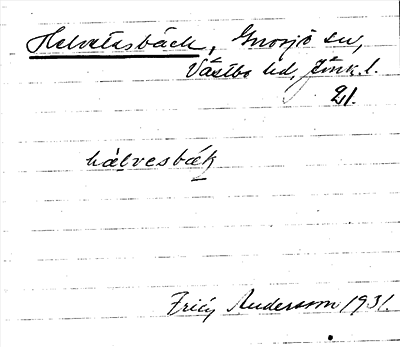 Helvetesbäck, Gnosjö sn,
Västbo hd, Jönk. l.
hälvesbäk
Andersson 1931.